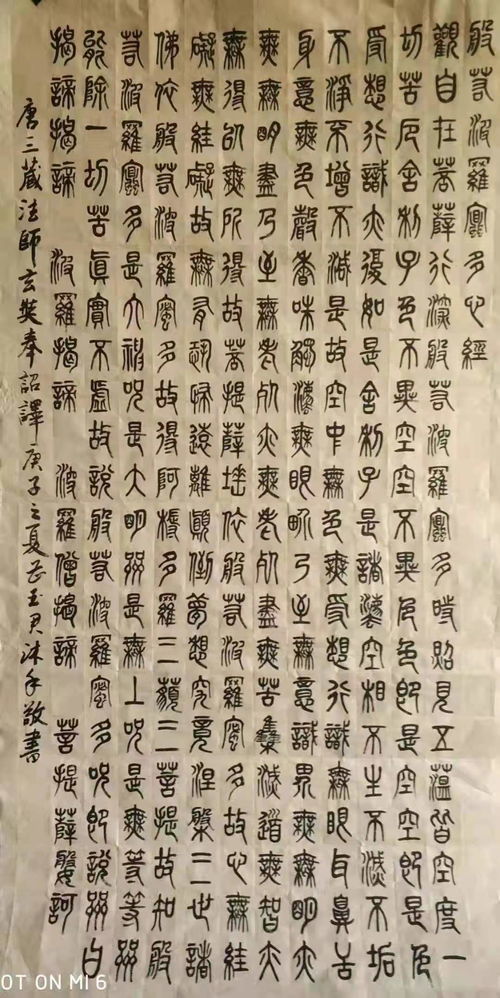 般若波羅蜜多心經
觀自在菩薩行深般若波羅蜜多時照見五蘊皆空度一
切苦厄舍利子色不異空空不異色色即是空空即是色
受想行識亦復如是舍利子是諸法空相不生不滅不垢
不淨不增不減是故空中無色無受想行識無眼耳鼻舌
身意無色聲香味觸法無眼界乃至無意識界無無明亦
無無明盡乃至無老死亦無老死盡無苦集滅道無智亦
無得以無所得故菩提薩埵依般若波羅蜜多故心無罣
礙無罣礙故無有恐怖遠離顛倒夢想究竟涅槃三世諸
佛依般若波羅蜜多故得阿耨多羅三藐三菩提故知般
若波羅蜜多是大神咒是大明咒是無上咒是無等等咒
能除一切苦真實不虛故說般若波羅蜜多咒即說咒曰
揭諦揭諦 波羅揭諦 波羅僧揭諦 菩提薩婆訶
唐三藏法師玄奘奉詔譯 庚子之夏 玉君沐手敬書
OT ON MI 6